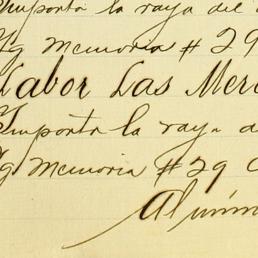 Importa la raya de
Memoria # 29
Labor Las Merc
Importa la raya d
Memoria # 29